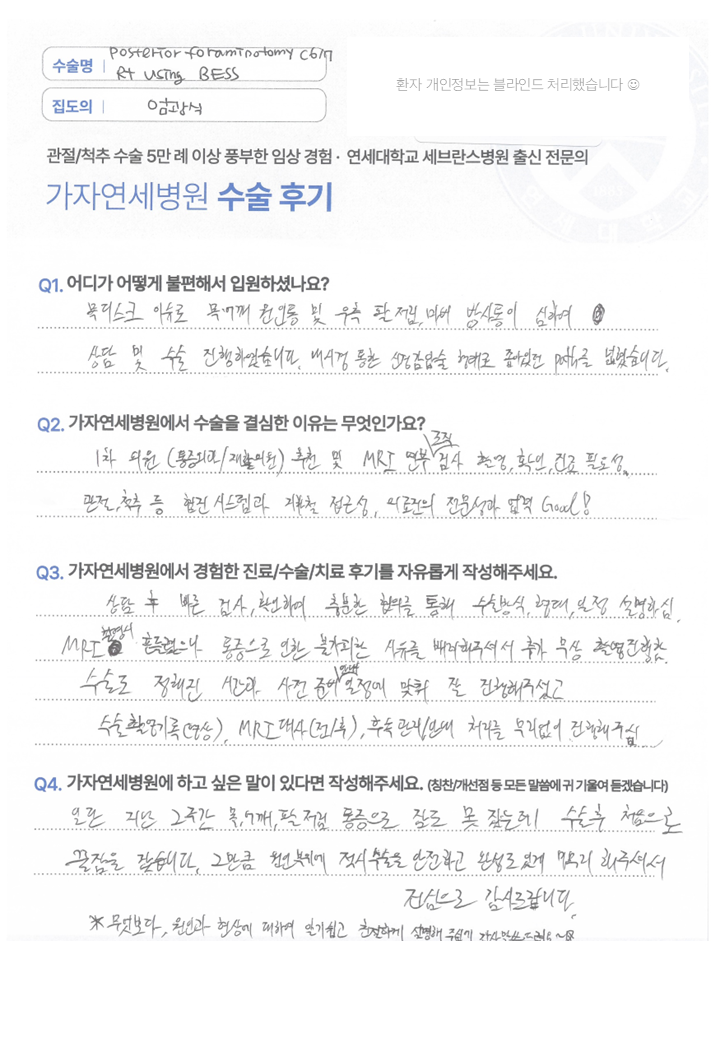 수술명 | Posterior foraminotomy C6/7
Rt using BESS
환자 개인정보는 블라인드 처리했습니다 ☺
집도의 | 엄광식
관절/척추 수술 5만 례 이상 풍부한 임상 경험 · 연세대학교 세브란스병원 출신 전문의
가자연세병원 수술 후기
Q1. 어디가 어떻게 불편해서 입원하셨나요?
목디스크 이슈로 목어깨 원인통 및 우측 팔 저림, 마비 방사통이 심하여
상담 및 수술 진행하였습니다. 내시경 통한 신경감압술 형태로 좁아있던 path를 넓혔습니다.
Q2. 가자연세병원에서 수술을 결심한 이유는 무엇인가요?
1차 의원 (통증의학/재활의원) 추천 및 MRI 검사 촬영, 확인, 진료 필요성.
관절, 척추 등 협진 시스템과 지하철 접근성, 의료진의 전문성과 압력 Good!
Q3. 가자연세병원에서 경험한 진료/수술/치료 후기를 자유롭게 작성해주세요.
상담 후 빠른 검사, 확인하여 충분한 협의를 통해 수술방식, 형태, 일정 설명하심.
MRI 촬영시 흔들렸으나 통증으로 인한 불가피한 사유를 배려해주셔서 추가 무상 촬영진행함.
수술도 정해진 시간과 사전 안내 일정에 맞춰 잘 진행해주셨고
수술촬영기록(영상), MRI 대사(전/후), 후속관리/안내 처리를 무리없이 진행해주심
Q4. 가자연세병원에 하고 싶은 말이 있다면 작성해주세요. (칭찬/개선점 등 모든 말씀에 귀 기울여 듣겠습니다)
일단 지난 2주간 목, 어깨, 팔저림 통증으로 잠도 못 잤는데 수술후 처음으로
꿀잠을 잤습니다. 그만큼 원인부위에 적시 수술을 안전하고 완성도있게 마무리 해주셔서
진심으로 감사드립니다.
* 무엇보다, 원인과 현상에 대하여 알기쉽고 친절하게 설명해 주심에 감사말씀드려요~